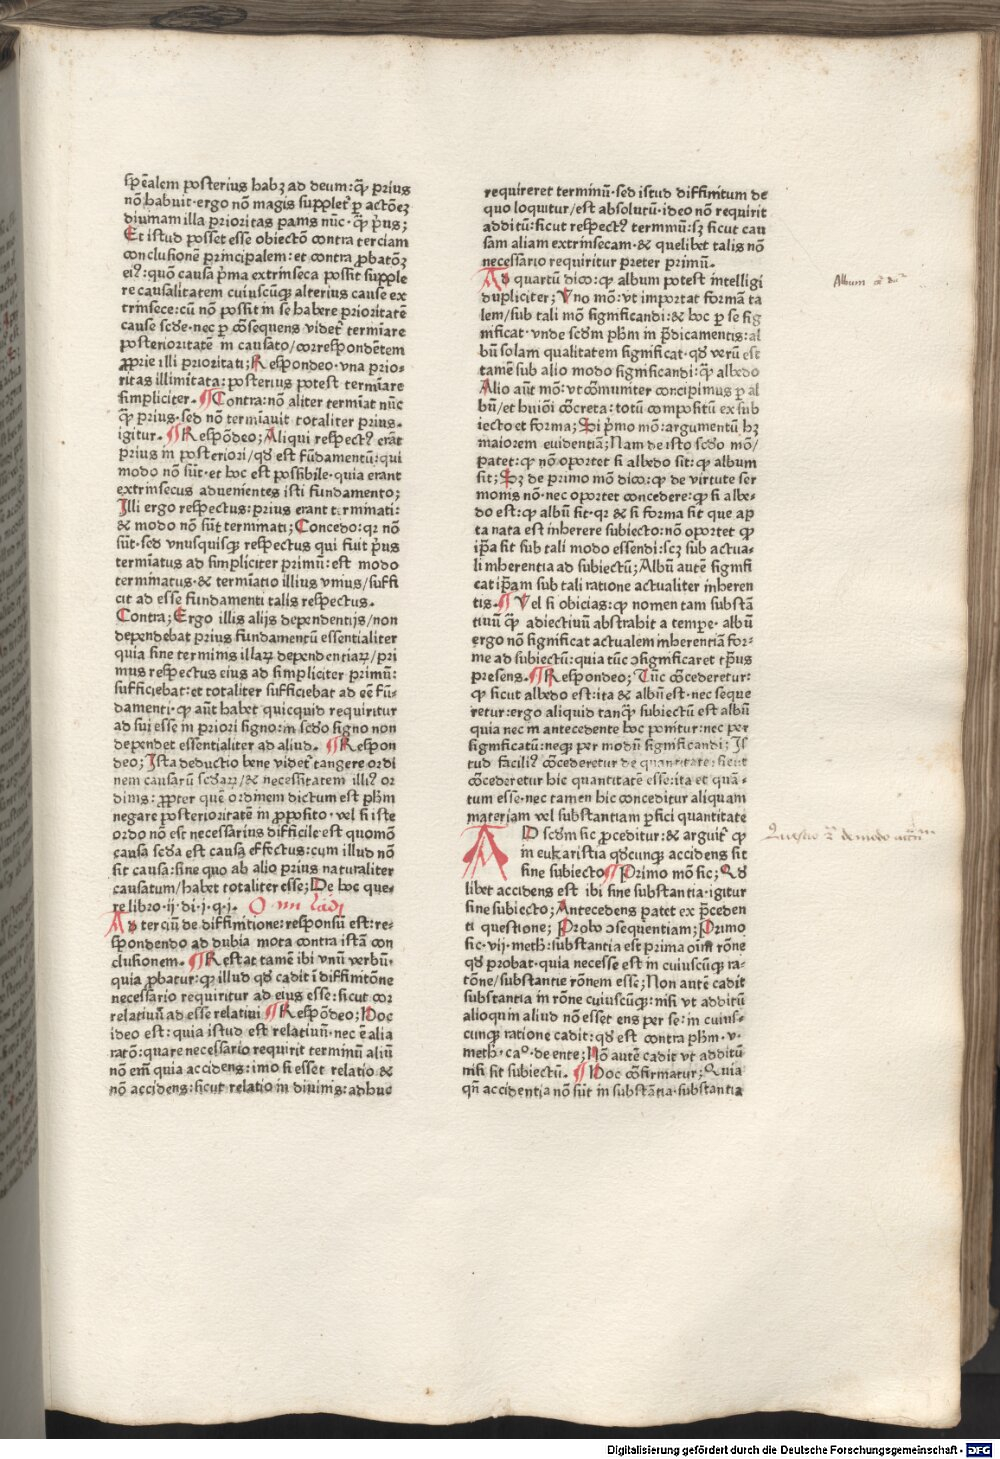 spēalem posterius habꝫ ad deum: qꝫ prius
nō habuit· ergo nō magis supplet᷑ ꝑ actōeꝫ
diuinam illa prioritas pams nūc· qꝫ p̄us;
Et istud posset esse obiectō contra terciam
conclusionē principalem: et contra ꝓbatōeꝫ
eiꝰ: quō causa p̄ma extrinseca possit supple
re causalitatem cuiuscūqꝫ alterius cause ex
trinsece: cū nō possit in se habere prioritatē
cause scd̄e· nec ꝑ cōsequens videt᷑ termiāre
posterioritatē in causato/correspondētem
ꝓprie illi prioritati; Respondeo· vna prio-
ritas illimitata: posterius potest termiāre
simpliciter· ¶Contra: nō aliter termīat nūc
qꝫ prius· sed nō termiāuit totaliter prius·
igitur· ¶Respōdeo; Aliqui respectꝰ erāt
prius in posteriori/qd̄ est fūdamentū: qui
modo nō sūt· et hoc est possibile· quia erant
extrinsecus aduenientes isti fundamento;
Illi ergo respectus: prius erant terminati:
& modo nō sūt terminati; Concedo: qꝛ nō
sūt· sed vnusquisqꝫ respectus qui fuit p̄us
termīatus ad simpliciter primū: est modo
terminatus· & termīatio illius vnius/suffi
cit ad esse fundamenti talis respectus·
Contra; Ergo illis alijs dependentijs/non
dependebat prius fundamentū essentialiter
quia sine terminis illaꝝ dependentiaꝝ/pri
mus respectus eius ad simpliciter primū:
sufficiebat: et totaliter sufficiebat ad eē fū-
damenti· qꝫ aūt habet quicquid requiritur
ad sui esse in priori signo: in scd̄o signo non
dependet essentialiter ad aliud· ¶Respon
deo; Ista deductio bene videt᷑ tangere ordi
nem causarū scd̄aꝝ/& necessitatem illiꝰ or
dinis: ꝓpter quē ordinem dictum est ph̄m
negare posterioritatē in ꝓposito· vel si iste
ordo nō est necessarius difficile est quomō
causa scd̄a est causa effectus: cum illud nō
sit causa: sine quo ab alio prius naturaliter
causatum/habet totaliter esse; De hoc que-
re libro· ij· di· j· q· j·
Ad terciū de diffinitione: responsū est: re-
spondendo ad dubia mota contra istā con
clusionem· ¶Restat tamē ibi vnū verbū·
quia ꝓbatur: qꝫ illud qd̄ cadit ī diffinitōne
necessario requiritur ad eius esse: sicut cor
relatiuū ad esse relatiui ¶Respōdeo; Hoc
ideo est: quia istud est relatiuū· nec ē alia
ratō: quare necessario requirit terminū aliū
nō em̄ quia accidens: imo si esset relatio &
nō accidens: sicut relatio in diuinis: adhuc
requireret terminū· sed istud diffinitum de
quo loquitur/est absolutū· ideo nō requirit
additū: sicut respectꝰ terminū: sꝫ sicut cau
sam aliam extrinsecam· & quelibet talis nō
necessario requiritur preter primū·
Ad quartū dico: qꝫ album potest intelligi
dupliciter; Vno mō: vt importat formā ta
lem/sub tali mō significandi: & hoc ꝑ se sig
nificat· vnde scd̄m ph̄m in p̄dicamentis: al
bū solam qualitatem significat· qd̄ verū est
tamē sub alio modo significandi: qꝫ albedo
Alio aūt mō: vt cōmuniter concipimus ꝑ al
bū/et huiōi cōcreta: totū compositū ex sub
iecto et forma; Si p̄mo mō: argumentū hꝫ
maiorem euidentiā; Nam de isto scd̄o mō/
patet: qꝫ nō oportet si albedo sit: qꝫ album
sit; Sꝫ de primo mō dico: qꝫ de virtute ser
monis nō· nec oportet concedere: qꝫ si albe-
do est: qꝫ albū sit· qꝛ & si forma sit que ap
ta nata est inherere subiecto: nō oportet qꝫ
ip̄a sit sub tali modo essendi: scꝫ sub actua-
li inherentia ad subiectū; Albū autē signifi
cat ip̄am sub tali ratione actualiter inheren
tis· ¶Vel si obicias: qꝫ nomen tam substā
tiuū qꝫ adiectiuū abstrahit a tempore· albū
ergo nō significat actualem inherentiā for-
me ad subiectū: quia tūc ꝯsignificaret tp̄us
presens· ¶Respondeo; Tūc cōcederetur:
qꝫ sicut albedo est: ita & albū est· nec seque
retur: ergo aliquid tanqꝫ subiectū est albū
quia nec in antecedente hoc ponitur: nec per
significatū: neqꝫ per modū significandi; Is
tud faciliꝰ cōcederetur de quantitate: sicut
cōcederetur hic quantitatē esse: ita et quā-
tum esse· nec tamen hic conceditur aliquam
materiam vel substantiam ꝑfici quantitate
AD scd̄m sic ꝓceditur: & arguit᷑ qꝫ
in eukaristia qd̄cunqꝫ accidens sit
sine subiecto ¶Primo mō sic; Qd̄
libet accidens est ibi sine substantia· igitur
sine subiecto; Antecedens patet ex p̄ceden
ti questione; Probo ꝯsequentiam; Primo
sic· vij· meth: substantia est prima oīm rōne
qd̄ probat· quia necesse est in cuiuscūqꝫ ra-
tōne/substantie rōnem esse; Non autē cadit
substantia in rōne cuiuscūqꝫ: nisi vt additū
alioquin aliud nō esset ens per se: in cuius-
cunqꝫ ratione cadit: qd̄ est contra ph̄m· v·
meth· caº· de ente; Nō autē cadit vt additū
nisi sit subiectū· ¶Hoc cōfirmatur; Quia
qn̄ accidentia nō sūt in substātia· substantia
Album
Questio 2ᵃ de modo
Digitalisierung gefördert durch die Deutsche Forschungsgemeinschaft - DFG